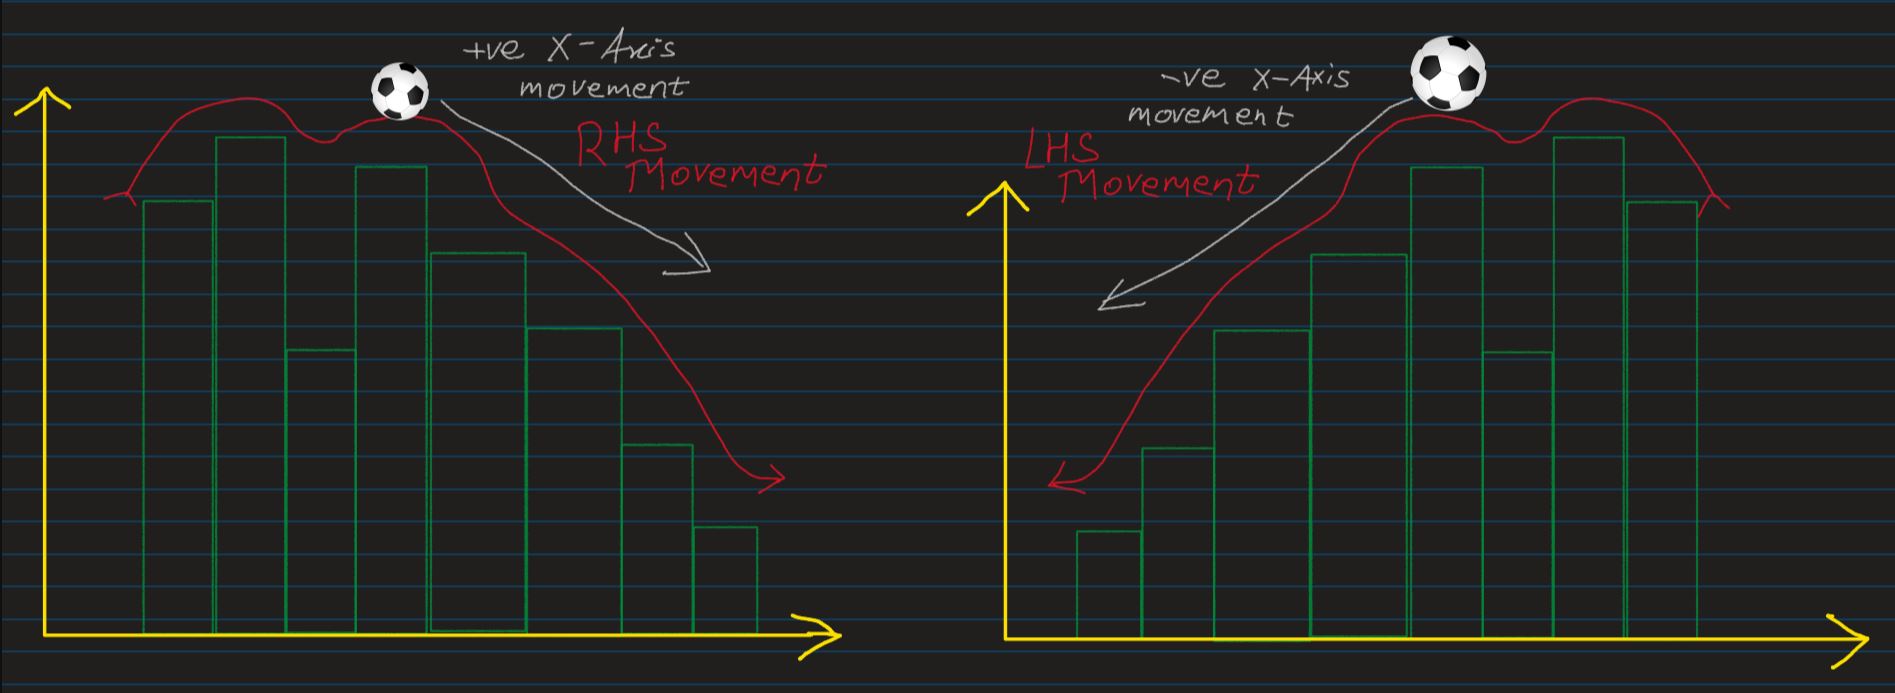 +ve X-Axis
movement
RHS
Movement
-ve X-Axis
movement
LHS
Movement